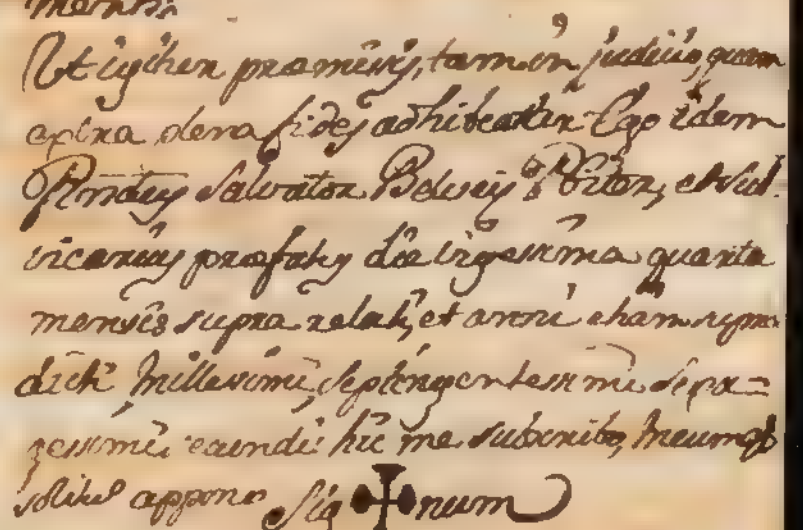 mensis
Ut igitur præmissis, tam in judicio, quam
extra dena fides adhibeatur Ego idem
Rndus Salvator Belsuis Pbiter, et
vicarius præfatus die vigessima quarta
mensis supra relati, et anni etiam supra
dicti Millessimi, septingentessimi sexa=
gessimi eaundi hic me subscribo, meumqb
solitu appono Sig num